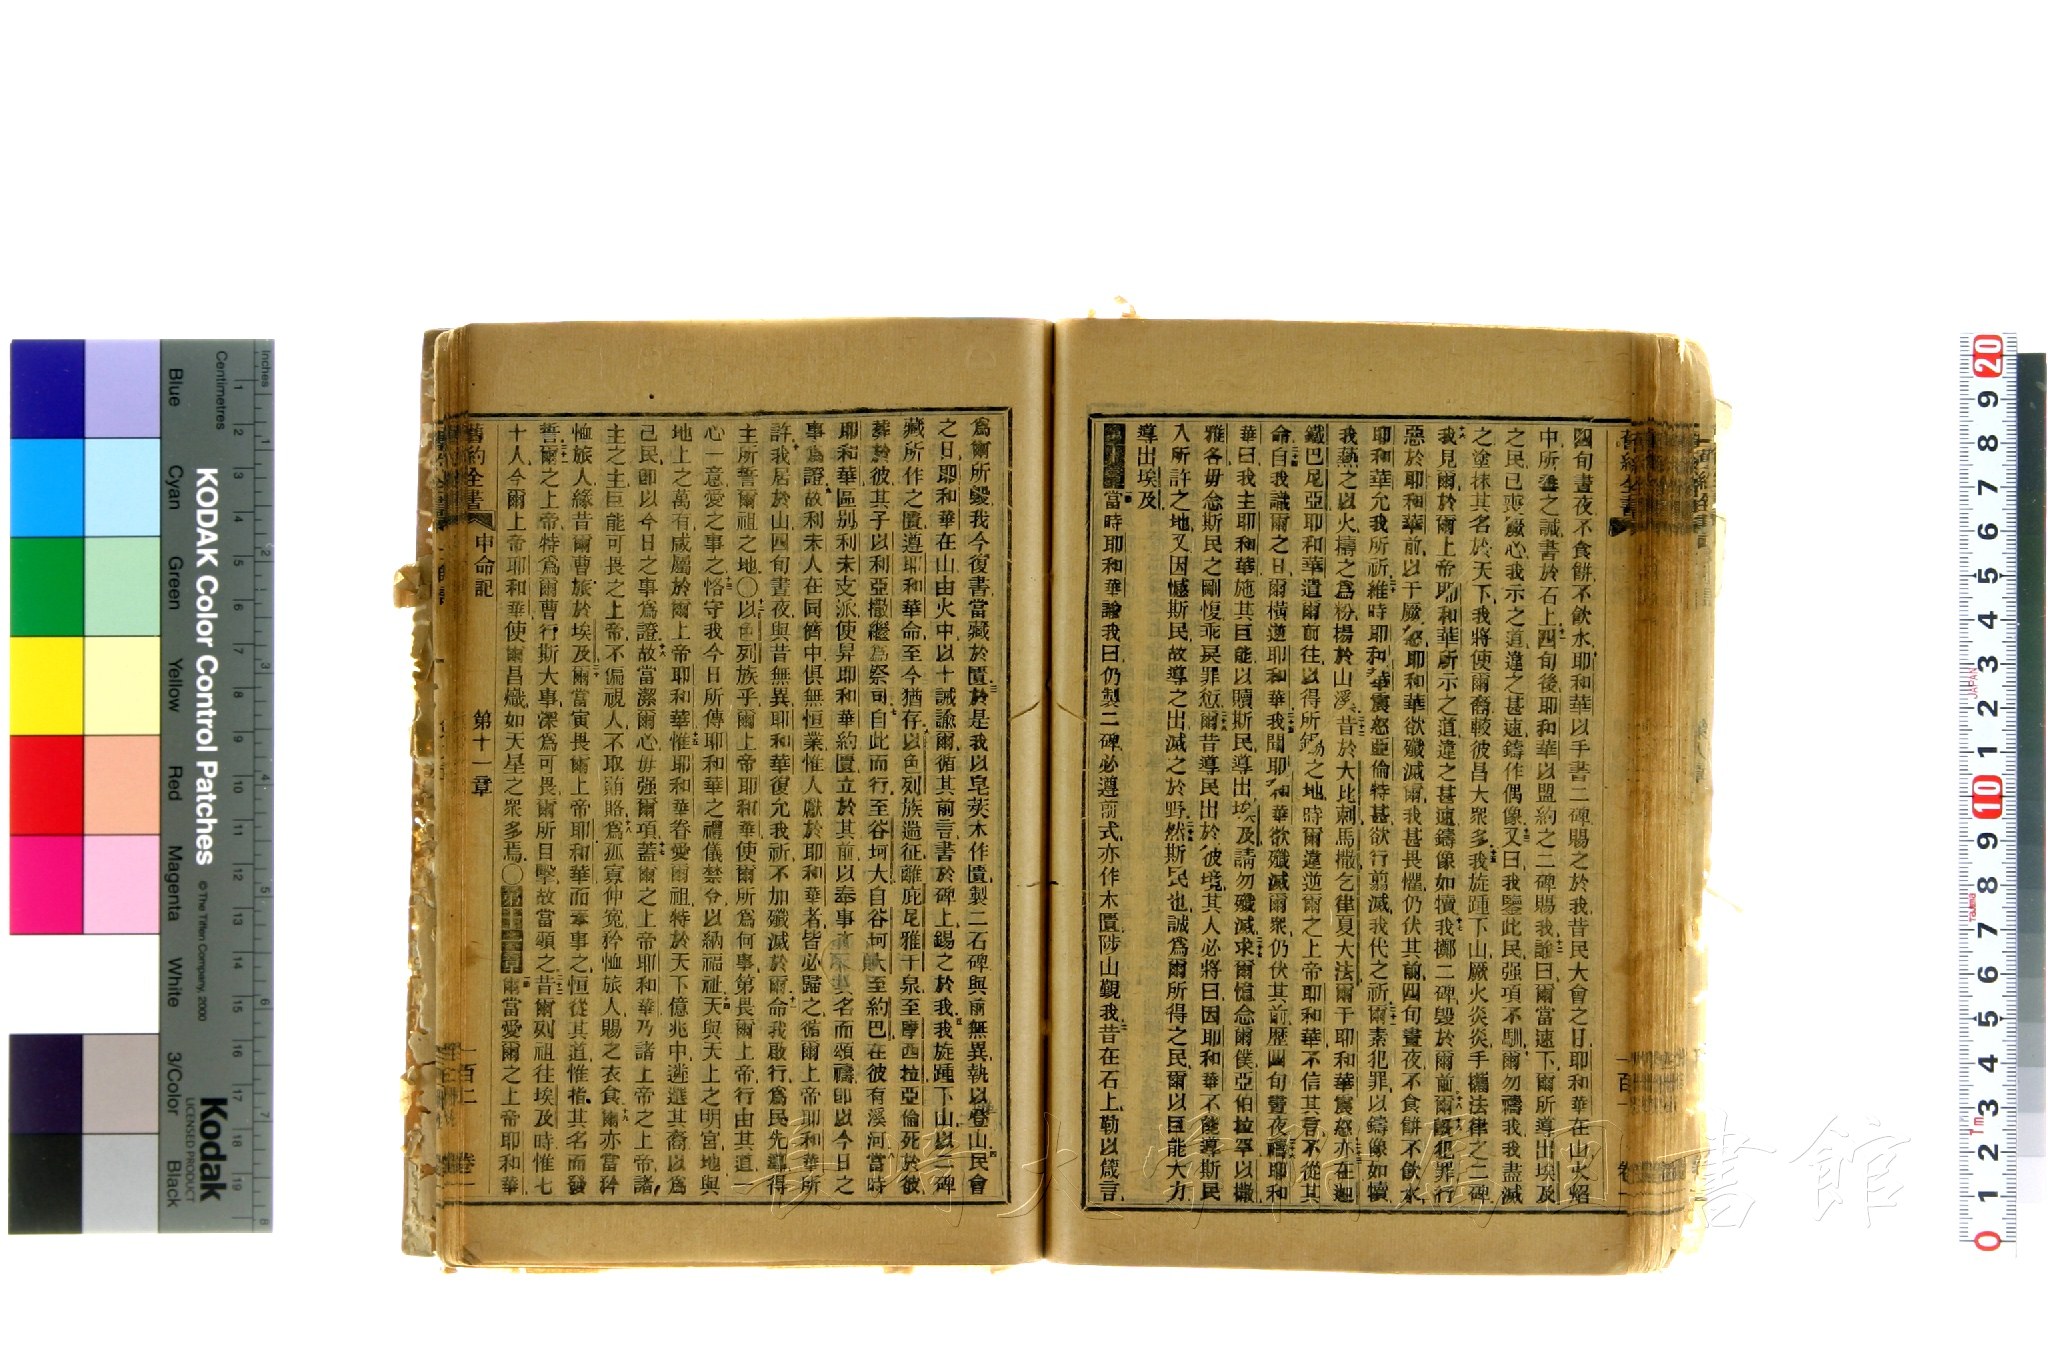 四旬晝夜不食餅不飲水耶和華以手書二碑賜之於我昔民大會之日耶和華在山火焰
中所垂之誡書於石上四旬後耶和華以盟約之二碑賜我諭曰爾當速下爾所導出埃及
之民已喪厥心我示之道違之甚速鑄作偶像又曰我鑒此民强項不馴爾勿禱我我盡滅
之塗抹其名於天下我將使爾裔較彼昌大衆多我旋踵下山厥火炎炎手攜法律之二碑
我見爾於爾上帝耶和華所示之道違之甚速鑄像如犢我擲二碑毀於爾前爾旣犯罪行
惡於耶和華前以干厥怒耶和華欲殲滅爾我甚畏懼仍伏其前四旬晝夜不食餅不飲水
耶和華允我所祈維時耶和華震怒亞倫特甚欲行翦滅我代之祈爾素犯罪以鑄像如犢
我爇之以火擣之爲粉揚於山溪昔於大比刺馬撒乞律夏大法爾干耶和華震怒亦在迦
鐵巴尼亞耶和華遣爾前往以得所錫之地時爾違逆爾之上帝耶和華不信其言不從其
命自我識爾之日爾橫逆耶和華我聞耶和華欲殲滅爾衆仍伏其前歷四旬晝夜禱耶和
華曰我主耶和華施其巨能以贖斯民導出埃及請勿殲滅求爾憶念爾僕亞伯拉罕以撒
雅各毋念斯民之剛愎乖戾罪愆爾昔導民出於彼境其人必將曰因耶和華不能導斯民
入所許之地又因憾斯民故導之出滅之於野然斯民也誠爲爾所得之民爾以巨能大力
導出埃及
第十章當時耶和華諭我曰仍製二碑必遵前式亦作木匱陟山覲我昔在石上勒以箴言
舊約全書
百一
爲爾所毀我今復書當藏於匱於是我以皂莢木作匱製二石碑與前無異執以登山民會
之日耶和華在山由火中以十誡諭爾循其前言書於碑上錫之於我我旋踵下山以二碑
藏所作之匱遵耶和華命至今猶存以色列族遄征離庇尼雅干泉至摩西拉亞倫死於彼
葬於彼其子以利亞撒繼爲祭司自此而行至谷坷大自谷坷大至約巴在彼有溪河當時
耶和華區別利未支派使舁耶和華約匱立於其前以奉事名而頌禱卽以今日之
事爲證故利未人在同儕中俱無恒業惟人獻於耶和華者皆必歸之循爾上帝耶和華所
許我居於山四旬晝夜與昔無異耶和華復允我祈不加殲滅於爾命我啟行爲民先導得
主所誓爾祖之地○以色列族乎爾上帝耶和華使爾所爲何事第畏爾上帝行由其道一
心一意愛之事之恪守我今日所傳耶和華之禮儀禁令以納福祉天與天上之明宮地與
地上之萬有咸屬於爾上帝耶和華惟耶和華眷愛爾祖特於天下億兆中遴選其裔以爲
己民卽以今日之事爲證故當潔爾心毋强爾項蓋爾之上帝耶和華乃諸上帝之上帝諸
主之主巨能可畏之上帝不偏視人不取賄賂爲孤寡伸冤矜恤旅人賜之衣食爾亦當矜
恤旅人緣昔爾曹旅於埃及爾當寅畏爾上帝耶和華而奉事之恒從其道惟指其名而發
誓爾之上帝特爲爾曹行斯大事深爲可畏爾所目擊故當頌之昔爾列祖往埃及時惟七
十人今爾上帝耶和華使爾昌熾如天星之衆多焉○第十一章爾當愛爾之上帝耶和華
舊約全書 申命記 第十一章 一百二 卷一
長崎大学附属図書館
KODAK Color Control Patches
© The Tiffen Company, 2000
Kodak
LICENSED PRODUCT
Inches
Centimetres
Blue
Cyan
Green
Yellow
Red
Magenta
White
3/Color
Black
JAPAN